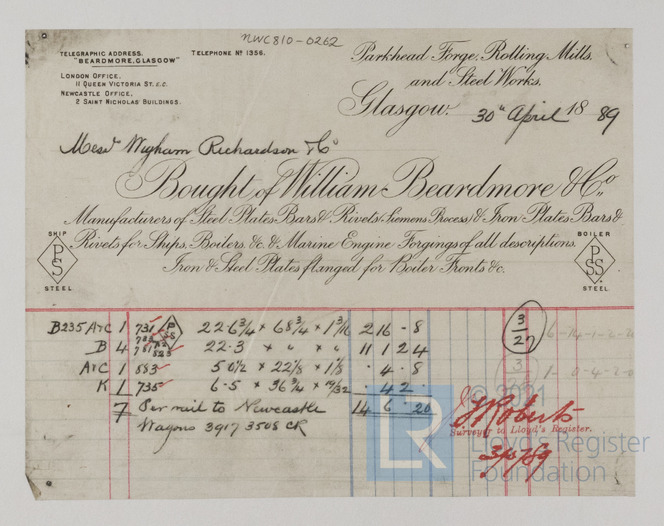 NWC810-0262
TELEGRAPHIC ADDRESS.
"BEARDMORE, GLASGOW"
TELEPHONE No 1356.
LONDON OFFICE.
11 QUEEN VICTORIA ST. E.C.
NEWCASTLE OFFICE.
2 SAINT NICHOLAS' BUILDINGS.
Parkhead Forge, Rolling Mills,
and Steel Works.
Glasgow. 30th April 1889
Messrs Wigham Richardson & Co
Bought of William Beardmore & Co.,
Manufacturers of Steel Plates, Bars & Rivets (Siemens Process) & Iron Plates Bars &
Rivets for Ships, Boilers, &c. & Marine Engine Forgings of all descriptions.
Iron & Steel Plates flanged for Boiler Fronts &c.
SHIP
PS
STEEL
BOILER
PSS
STEEL
B235 A+C 1 731 PS 22.6 3/4 × 68 3/4 × 1 3/16 2 16 . 8
B 4 781 782 783 823 22.3 × " × " 11 1 2 4
A+C 1 883 5 0 1/2 × 22 1/8 × 1 1/8 . 4 . 8
K 1 735 6.5 × 36 3/4 × 19/32 . 4 2 .
7 Per mail to Newcastle 14 6 . 20
Wagons 3917 3508 CR
3/27
© 2021
J Roberts
Surveyor to Lloyd's Register.
3/5/89
LR
Lloyd's Register
Foundation